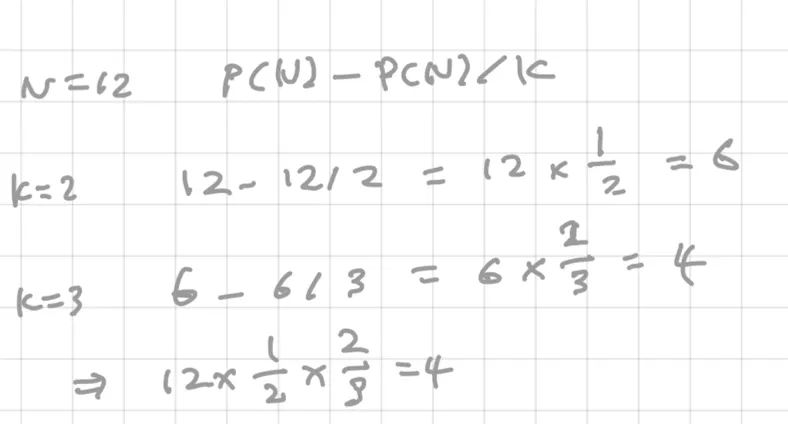 N=12 P(N) - P(N)/K
K=2 12 - 12/2 = 12 × 1/2 = 6
K=3 6 - 6/3 = 6 × 2/3 = 4
⇒ 12 × 1/2 × 2/3 = 4